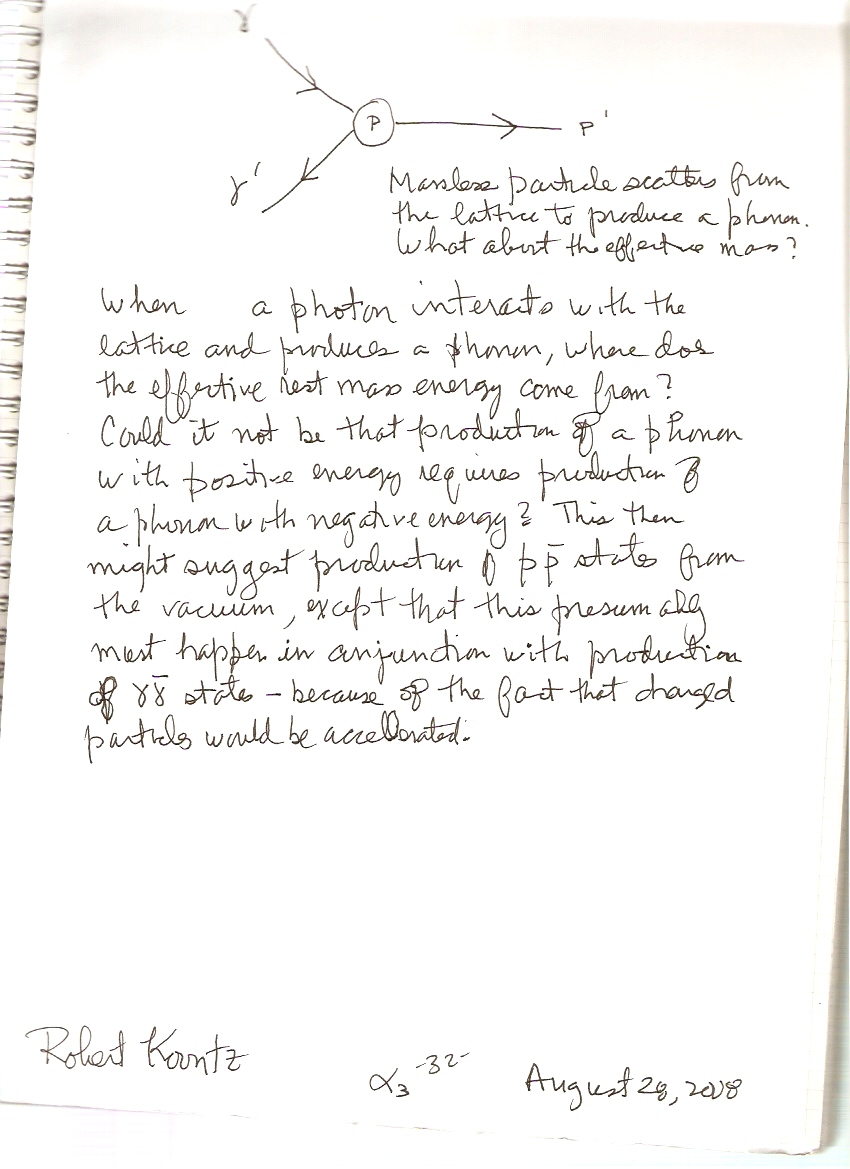 γ
P
P'
γ'
Massless particle scatters from
the lattice to produce a phonon.
What about the effective mass?
When a photon interacts with the
lattice and produces a phonon, where does
the effective rest mass energy come from?
Could it not be that production of a phonon
with positive energy requires production of
a phonon with negative energy? This then
might suggest production of p p̄ states from
the vacuum, except that this presumably
must happen in conjunction with production
of γγ̄ states – because of the fact that charged
particles would be accellerated.
Robert Koontz
α₃ -32-
August 28, 2008